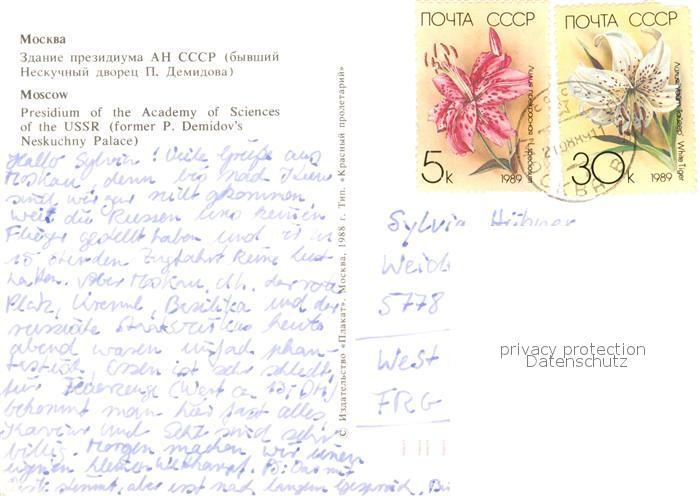 Москва
Здание президиума АН СССР (бывший
Нескучный дворец П. Демидова)
Moscow
Presidium of the Academy of Sciences
of the USSR (former P. Demidov's
Neskuchny Palace)
Hallo Sylvia! Viele Grüße aus
Moskau, denn bis nach Kiew
sind wir gar nicht gekommen,
weil die Russen uns keinen
Flieger gestellt haben und wir
15 Stunden Zugfahrt keine Lust
hatten. Aber Moskau, d.h. der rote
Platz, Kreml, Basilika und der
russische Staatszirkus heute
abend waren einfach phan-
tastisch, Essen ist sehr schlecht,
für Feuerzeuge (Wert ca. 15,- DM)
bekommt man hier fast alles
Kaviar und Sekt sind sehr
billig. Morgen machen wir einen
eigenen kleinen Wettkampf. PS:
ist stimmt, aber erst nach langem Gespräch,
© Издательство «Плакат». Москва. 1988 г. Тип. «Красный пролетарий»
ПОЧТА СССР
5к
1989
Speciosum
ПОЧТА СССР
30к
1989
White Tiger
МОСКВА
Sylvia Hübner
5778
West
FRG
privacy protection
Datenschutz